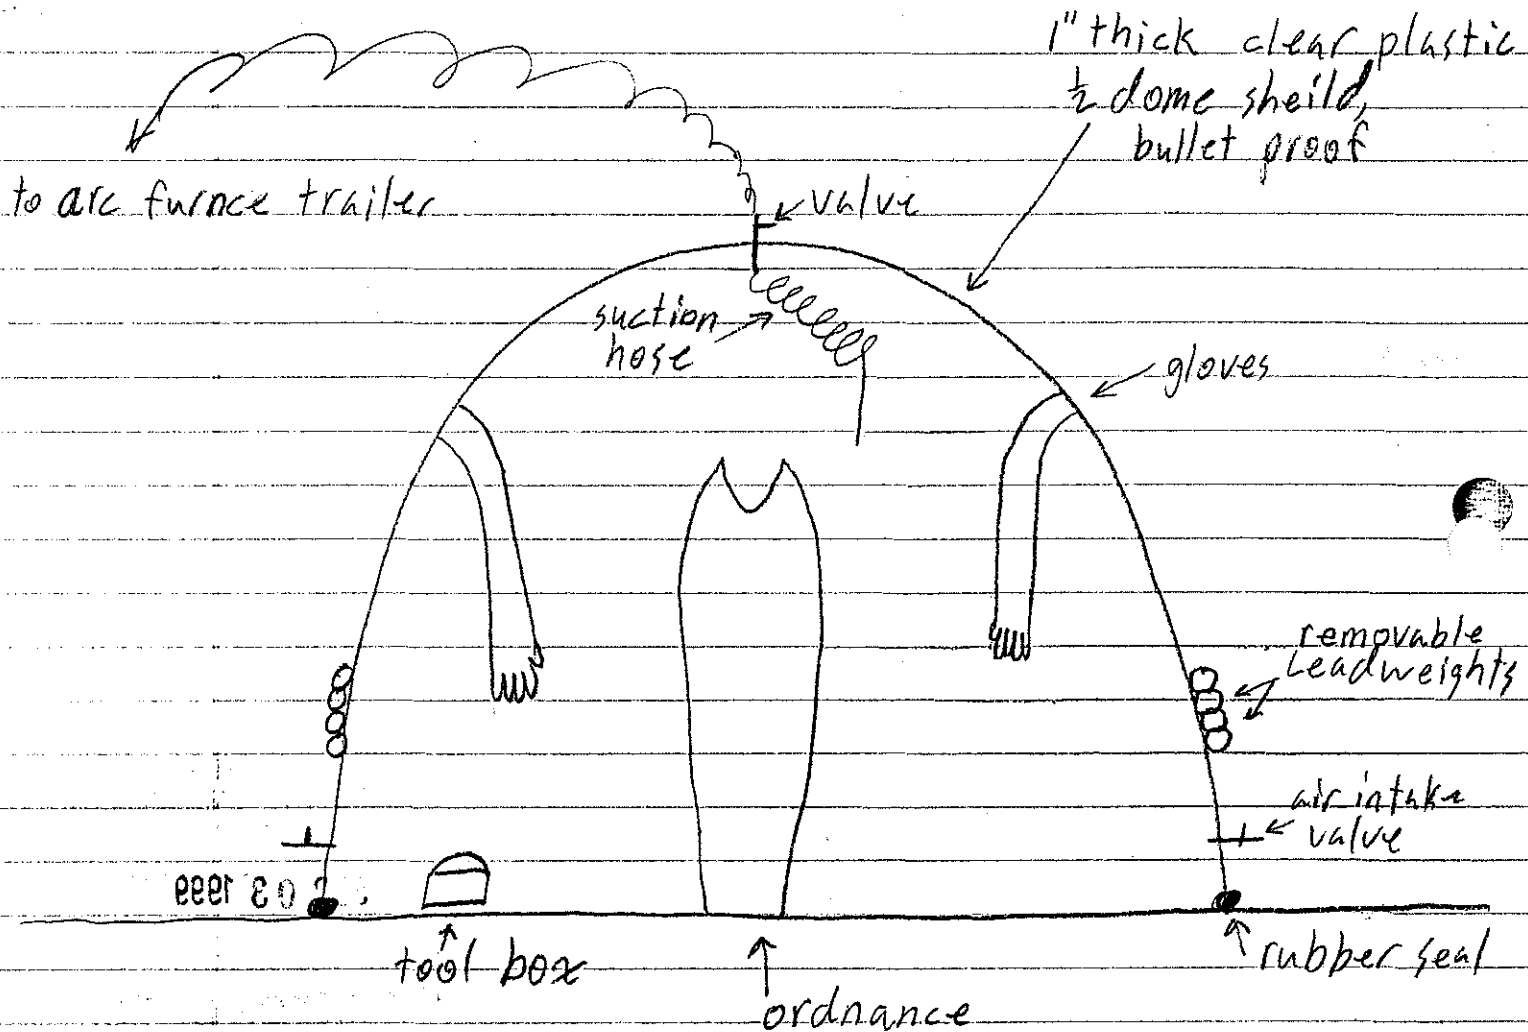 1" thick clear plastic
½ dome sheild,
bullet proof
to arc furnce trailer
valve
suction
hose
gloves
removable
Leadweights
air intake
valve
03 1999
tool box
ordnance
rubber seal